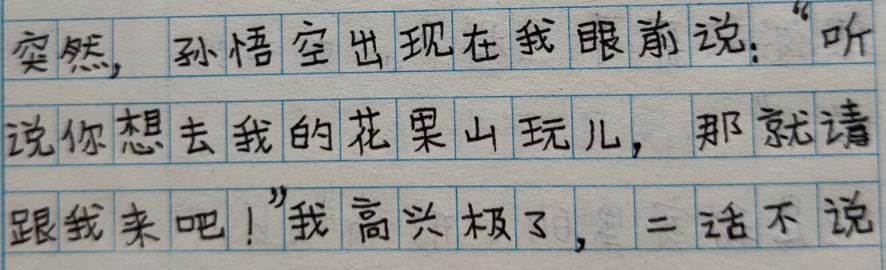 突然，孙悟空出现在我眼前说：“听
说你想去我的花果山玩儿，那就请
跟我来吧！”我高兴极了，二话不说